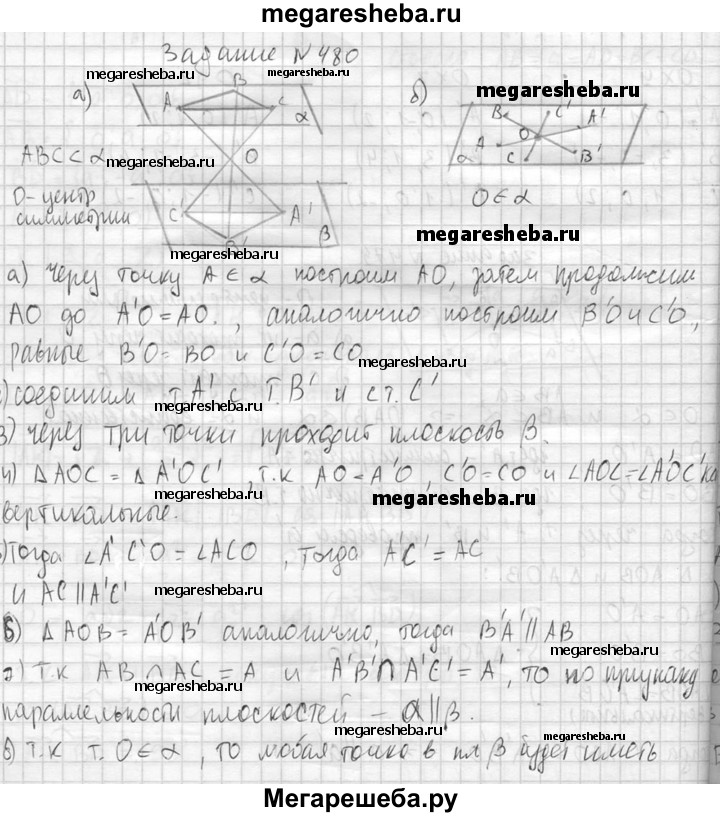 megaresheba.ru
Задание №480
megaresheba.ru megaresheba.ru
а) A B C α
б) megaresheba.ru
B C' A'
O
A α C B'
ABC ⊂ α megaresheba.ru O
O-центр
симметрии
O ∈ α
C' A' B
megaresheba.ru B'
megaresheba.ru
а) Через точку A ∈ α построим AO, затем продолжим
AO до A'O = AO. , аналогично построим B'O и C'O,
равные B'O = BO и C'O = CO
megaresheba.ru
)соединим т. A' с т. B' и с т. C'
megaresheba.ru
3) Через три точки проходит плоскость β.
megaresheba.ru
4) Δ AOC = Δ A'OC' , т.к AO = A'O, C'O = CO и ∠AOC = ∠A'OC' ка
megaresheba.ru
вертикальные.
)Тогда ∠A'C'O = ∠ACO , тогда A'C' = AC
и AC || A'C'
megaresheba.ru
6) Δ AOB = A'OB' аналогично, тогда B'A' || AB
megaresheba.ru
) т.к AB ∩ AC = A и A'B' ∩ A'C' = A', то по признаку
megaresheba.ru
параллельности плоскостей - α || β.
megaresheba.ru
б) т.к т. O ∈ α , то любая точка в пл β будет иметь
megaresheba.ru
megaresheba.ru
Мегарешеба.ру